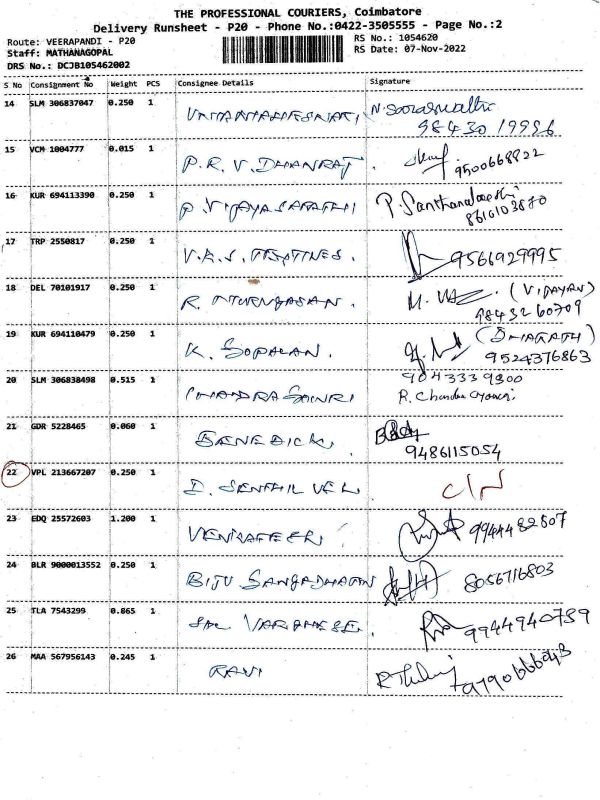 THE PROFESSIONAL COURIERS, Coimbatore
Delivery Runsheet - P20 - Phone No.:0422-3505555 - Page No.:2
Route: VEERAPANDI - P20 RS No.: 1054620
Staff: MATHANAGOPAL RS Date: 07-Nov-2022
DRS No.: DCJB105462002
S No Consignment No Weight PCS Consignee Details Signature
14 SLM 306837047 0.250 1
98430 19996
15 VCM 1004777 0.015 1 P.R.V. DHANRAJ
9500668822
16 KUR 694113390 0.250 1 P. VIJAYASARATHI P. Santhanalakshi
8610103870
17 TRP 2550817 0.250 1 9566929995
18 DEL 70101917 0.250 1 (VIJAYAN)
9843260709
19 KUR 694110479 0.250 1 K. GOPALAN. (BHARATH)
9524376863
20 SLM 306838498 0.515 1 9043339300
21 GDR 5228465 0.060 1 BENEDICK
9486115054
22 VPL 213667207 0.250 1 D. SENTHIL VEL C/N
23 EDQ 25572603 1.200 1 9944482807
24 BLR 9000013552 0.250 1 BIJU 8056716803
25 TLA 7543299 0.865 1 VARGHESE. 9944940759
26 MAA 567956143 0.245 1 RAVI